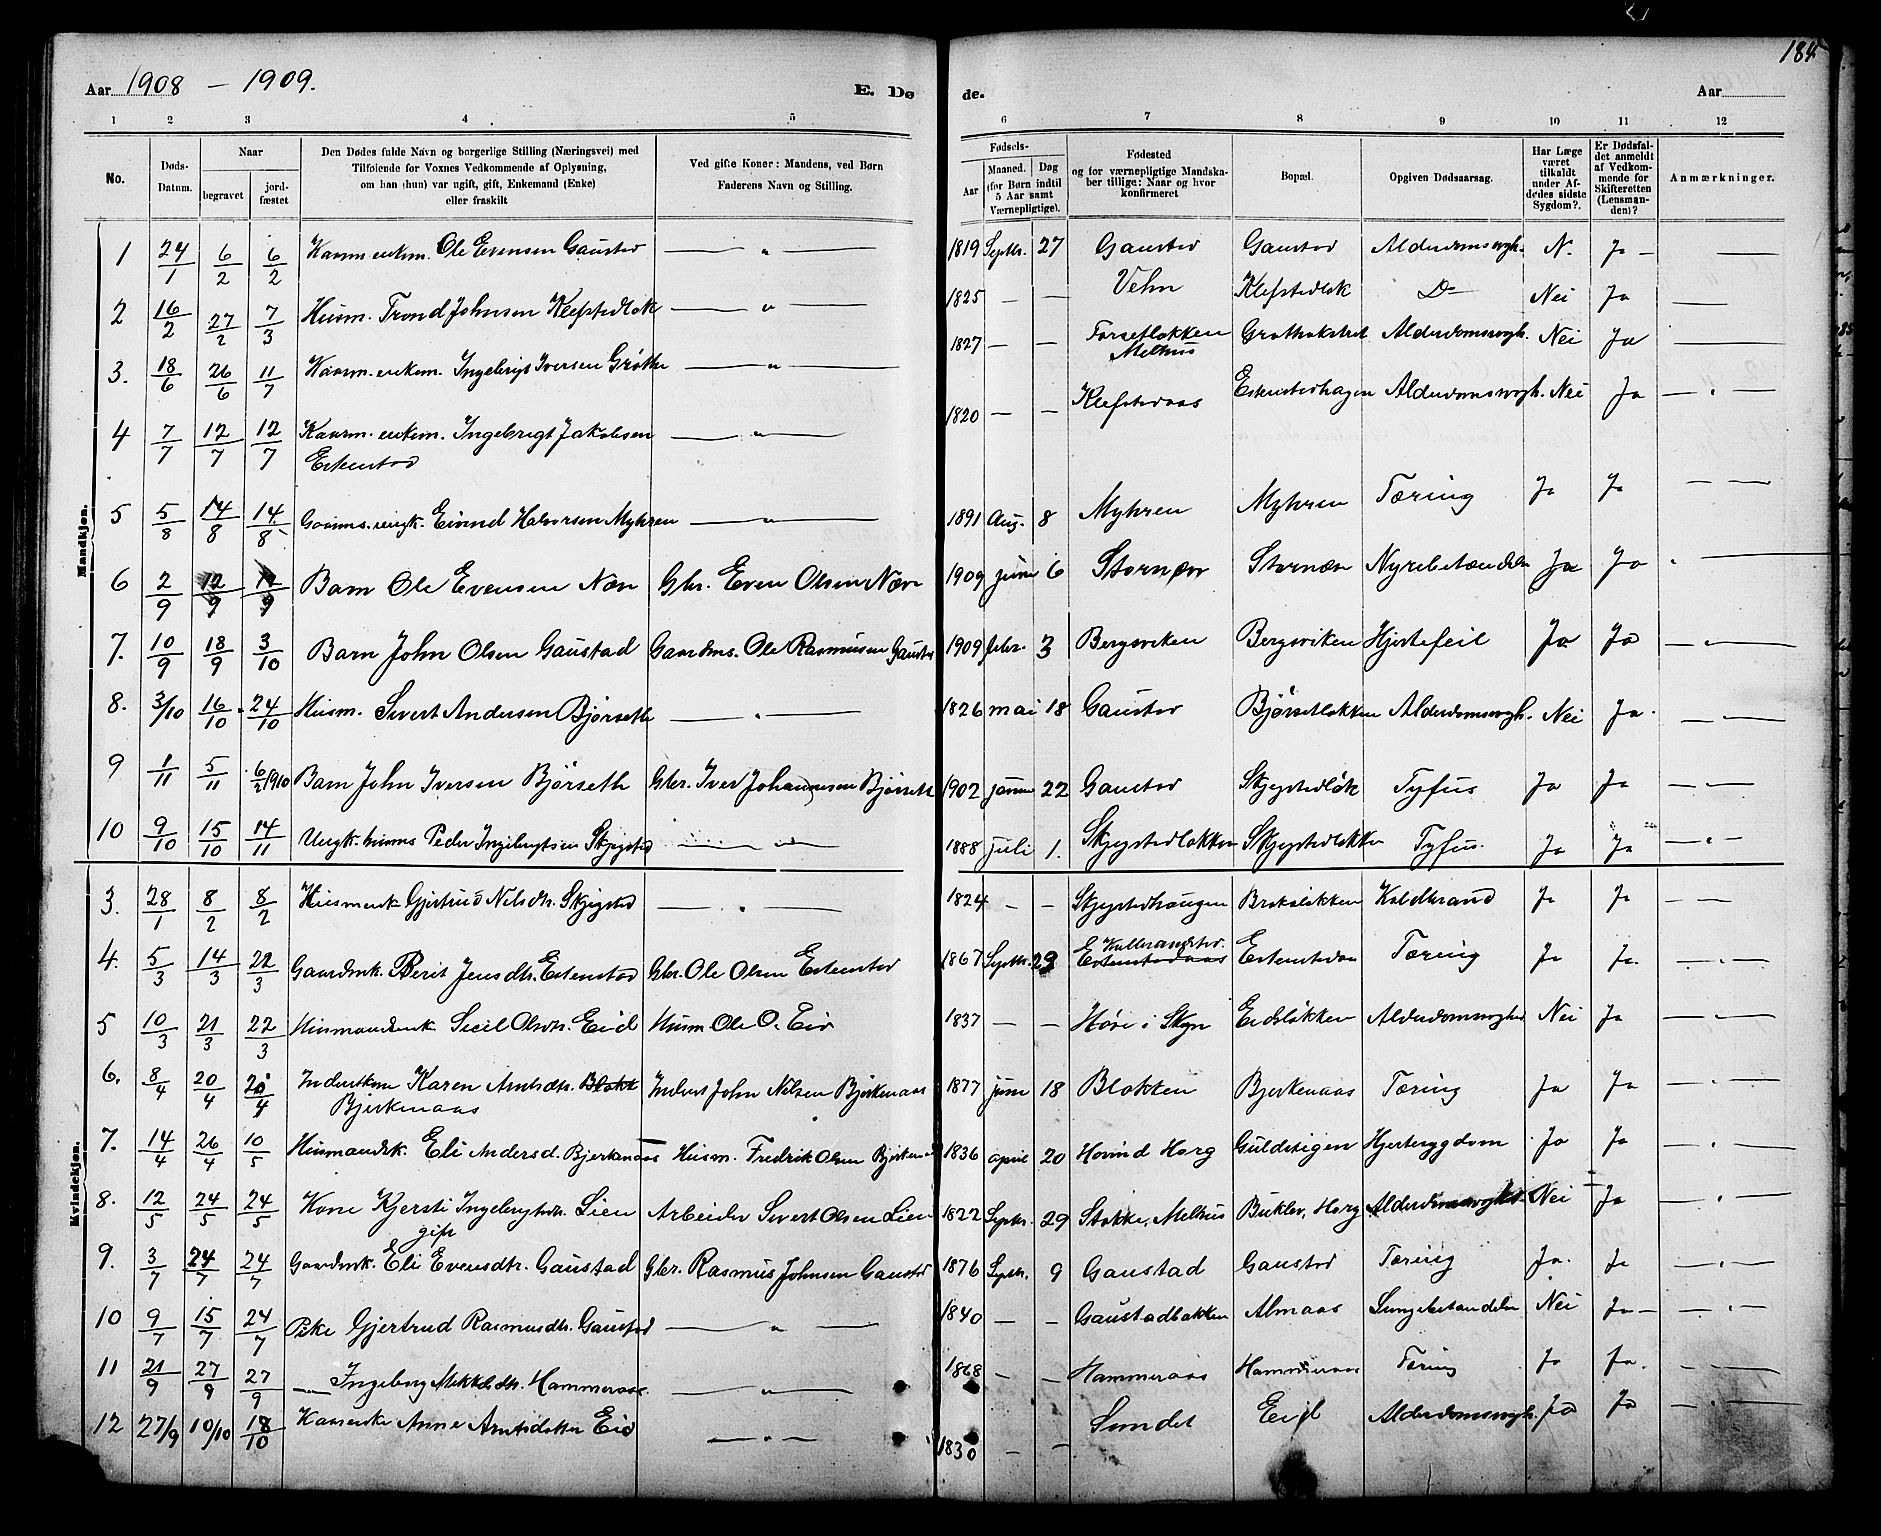 184
Aar 1908 – 1909. E. Dø de. Aar
1 2 3 4 5 6 7 8 9 10 11 12
No.
Døds-
Datum.
Naar
begravet
jord-
fæstet
Den Dødes fulde Navn og borgerlige Stilling (Næringsvei) med
Tilføiende for Voxnes Vedkommende af Oplysning,
om han (hun) var ugift, gift, Enkemand (Enke)
eller fraskilt
Ved gifte Koner: Mandens, ved Børn
Faderens Navn og Stilling.
Fødsels-
Aar
Maaned.
(for Børn
5 Aar
Værnepligtige).
Dag
indtil
samt
Fødested
og for værnepligtige Mandska-
ber tillige: Naar og hvor
konfirmeret
Bopæl.
Opgiven Dødsaarsag.
Har Læge
været
tilkaldt
under Af-
dødes sidste
Sygdom?.
Er Dødsfal-
det anmeldt
af Vedkom-
mende for
Skifteretten
(Lensman-
den)?
Anmærkninger.
Mandkjøn.
1 24/1 6/2 6/2 Ole Evensen Gaustad — " — 1819 Septbr. 27 Gaustad Gaustad Alderdomssvagh. N. Ja —
2 16/2 27/2 7/3 Husm. Trond Johnsen Klefstedløk — " — 1825 — — Vehn Klefstedløk D— Nei Ja —
3. 18/6 26/6 11/7 Ingebrigt Iversen Grøthe — " — 1827 — — Forsetløkken Melhus Alderdomssvagh. Nei Ja —
4 7/7 12/7 12/7 Ingebrigt Jakobsen Estenstad — " — 1820 — — Klefstadaas Estenstadhagen Alderdomssvagh. Nei Ja — " —
5 5/8 14/8 14/8 Eivind Halvorsen Myhren — " — 1891 Aug. 8 Myhren Myhren Tæring Ja Ja — —
6 2/9 12/9 12/9 Barn Ole Evensen Næv Gbr. Even Olsen Næv 1909 juni 6 Stornæv Stornæv Nyrebetændelse Ja Ja —
7. 10/9 18/9 3/10 Barn John Olsen Gaustad Gaardms. Ole Rasmussen Gaustad 1909 febr. 3 Bergsviken Bergsviken Hjertefeil Ja Ja — " —
8. 3/10 16/10 24/10 Husm. Sivert Andersen Bjørseth — " — 1826 mai 18 Gaustad Bjørsetløkken Alderdomssvagh. Nei Ja. — " —
9 1/11 5/11 6/2 1910 Barn John Iversen Bjørseth Gbr. Iver Johannesen Bjørseth 1902 22 Gaustad Skjegstedløk Tyfus Ja Ja — " —
10 9/10 15/10 14/11 Ungk. husms Peder Ingebrigtsen Skjegstad — " — 1888 juli 1. Skjegstadløkken Skjegstadløkken Tyfus. Ja Ja — " —
Kvindekjøn.
3. 28/1 8/2 8/2 Gjertrud Nilsdtr. Skjegstad — " — 1824 — — Skjegstadhaugen Koldbrand Ja Ja — —
4. 5/3 14/3 22/3 Gaardmk. Berit Jensdtr. Estenstad Gbr. Ole Olsen Estenstad 1867 Septbr. 23 Estenstadaas Estenstad Tæring Ja Ja. — " —
5 10/3 21/3 22/3 Husmandsenk Olsdtr. Eid Husm. Ole O. Eid 1837 — — Eidsløkken Alderdomssvaghed Nei Ja — " —
6. 8/4 20/4 Karen Arntsdtr. Bløkk Bjerkenaas Inderst John Nilsen Bjerkenaas 1877 juni 18 Bløkken Bjerkenaas Tæring Ja Ja — " —
7. 14/4 26/4 10/5 Husmandsk. Eli Andersd. Bjerkenaas — Husm. Fredrik Olsen Bjerkenaas 1836 april 20 Hovind Horg Guldstigen Hjertesygdom Ja Ja — " —
8. 12/5 24/5 24/5 Kone Kjersti Ingebrigtsdtr. Lien gift Arbeider Sivert Olsen Lien 1822 Septbr. 29 Stokke, Melhus Horg Alderdomssvaghed. Nei Ja — " —
9. 3/7 24/7 24/7 Gaardmk. Eli Evensdtr. Gaustad Gbr. Rasmus Johnsen Gaustad 1876 Septbr. 9 Gaustad Gaustad Tæring Ja. Ja — " —
10 9/7 15/7 24/7 Pike Gjertrud Rasmusdtr. Gaustad — " — 1840 — — Gaustadbakken Almaas Lungebetændelse Nei Ja — — " —
11 21/9 27/9 27/9 — " — Ingeborg Mikkelsdtr. Hammeraas — " — 1868 — — Hammeraas Hammeraas Tæring Ja Ja. — " —
12 27/9 10/10 18/10 Anne Arntsdatter Eid — " — 1830 — — Sundet Eid Alderdomssvagh. Ja Ja — " —